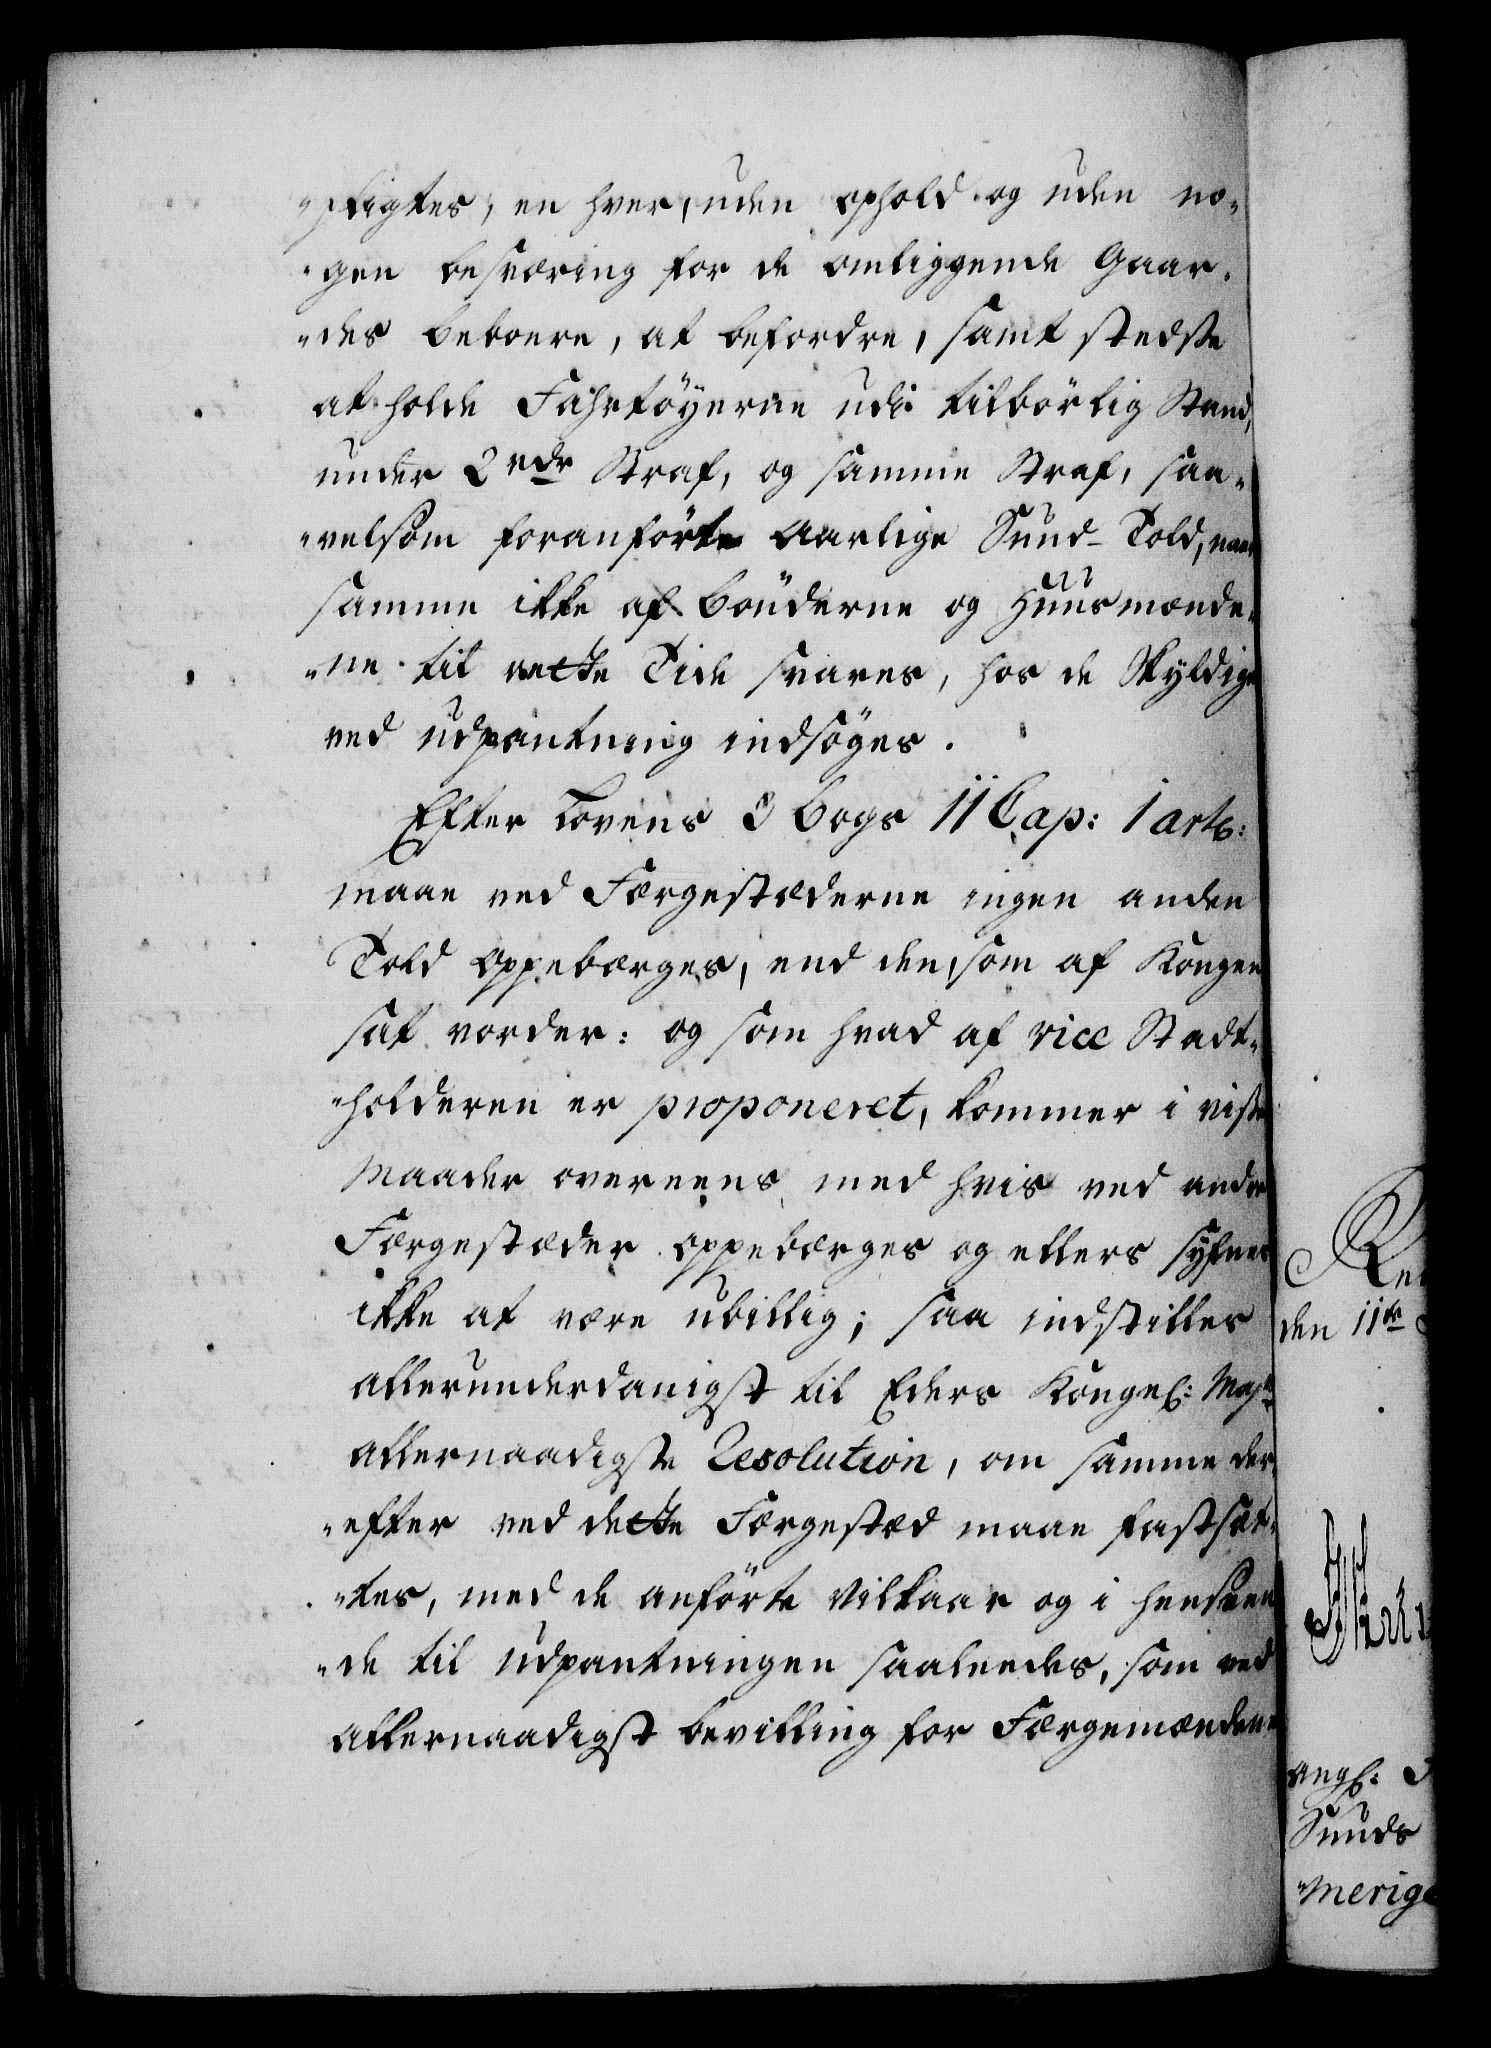 "pligtes, en hver, uden ophold og uden no-
"gen besværing for de omliggende Gaar-
"des beboere, at befordre, samt stedse
at holde Fahrtöyerne udi tilbörlig Stand,
under 2 rdr Straf, og samme Straf, saa-
"velsom foranförte aarlige Sund-Told, naar
samme ikke af Bönderne og Huusmænde-
"ne til rette Tide svares, hos de Skyldige
ved udpantning indsöges.
Efter Lovens 3 Bogs 11 Cap: 1 art:
maae ved Færgestæderne ingen anden
Told oppebærges, end den, som af Kongen
sat vorder: og som hvad af vice Stadt-
"holderen er proponeret, kommer i visse
Maader overeens med hvis ved andre
Færgestæder oppebærges og ellers synes
ikke at være ubillig; saa indstilles
allerunderdanigst til Eders Kongel: Mayts
allernaadigste Resolution, om samme der-
"efter ved dette Færgestæd maae fastsæt-
"tes, med de anförte Vilkaar og i henseen
"de til udpantningen saaledes, som ved
allernaadigst bevilling for Færgemændene
den 11te
angl:
Sunds
"merige